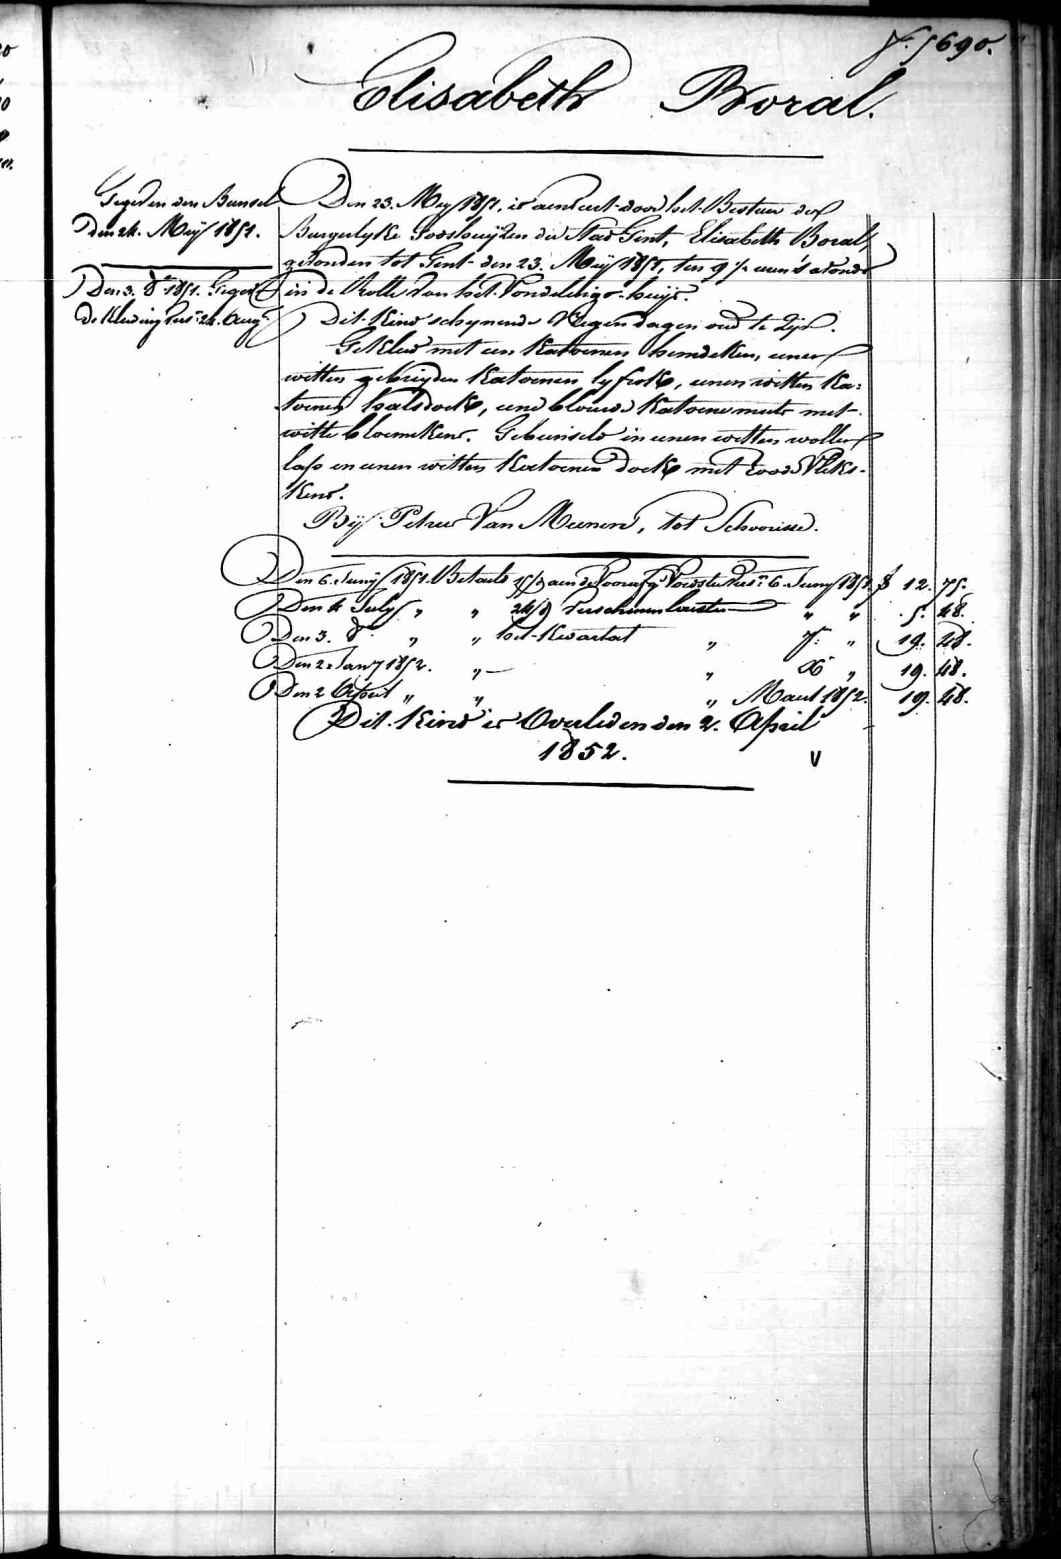 5690.
Elisabeth Boral.
Gegeven den Bunsel
den 24. Meij 1851.
Den 3. 8.e 1851. Gegev.
de Kleeding vers. 24. Aug.
Den 23. Mey 1851, is aenveert door het Bestuer der
Burgerlyke Godshuijzen der Stad Gent, Elisabeth Boral,
gevonden tot Gent den 23. Meij 1851, ten 9 ½ uren 's avonds
in de Rolle van het Vondelings-huijs.
Dit Kind schynende Negen dagen oud te Zijn.
Gekleed met een Katoenen hemdeken, eenen
witten gebreyden Katoenen lyfrok, eenen witten Ka=
toenen halsdoek, eene blouwe Katoene muts met
witte bloemkens. Gebunseld in eenen witten wollen
laps en eenen witten Katoenen doek met roode Vleks-
kens.
Bij Petrus Van Meenen, tot Schoorisse.
Den 6. Junij 1851. Betaeld aen de Voedster vers. 6. Juny 1851. f 12. 75.
Den 4 July " " 24/ Verschenen " " 5. 48.
Den 3. 8. " " het Kwartael " 7. " 19. 28.
Den 2. Jany 1852. " — " X " 19. 48.
Den 2 April " " " Maert 1852. 19. 48.
Dit Kind is Overleden den 2. April
1852. V